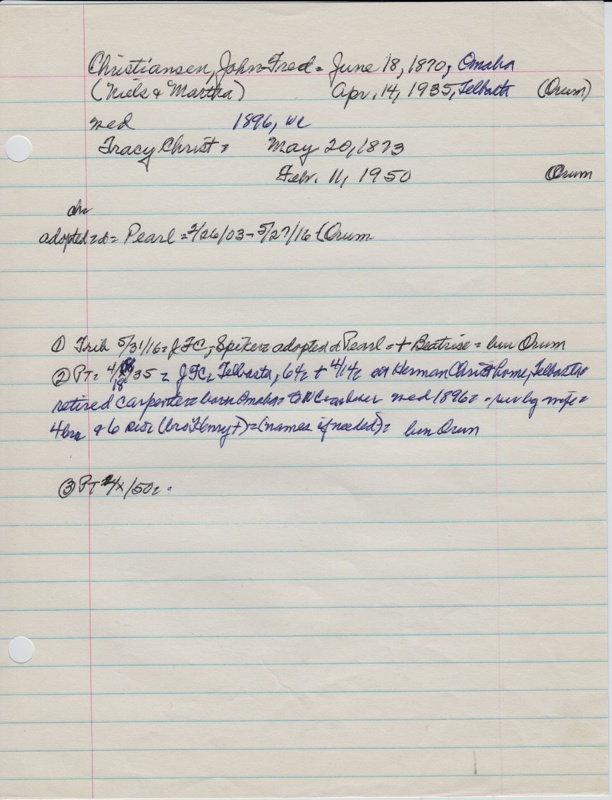 Christiansen, John Fred = June 18, 1870, Omaha
(Niels & Martha) Apr. 14, 1935, Telbasta (Orum)
med 1896, WC
Tracy Christ = May 20, 1873
Febr. 11, 1950 Orum
ch
adopted d = Pearl = 2/26/03 - 5/27/16 (Orum
① Trib 5/31/16 = JFC, Spiker = adopted d Pearl = + Beatrice = bur Orum
② PT = 4/18/35 = JFC, Telbasta, 64, + 4/14 at Herman Christ home, Telbasta
18
retired carpenter = born Omaha = to WC med 1896 = surv by wife =
4 bro & 6 sis (bro Henry +) = (names if needed) = bur Orum
③ PT 2/x/50 =